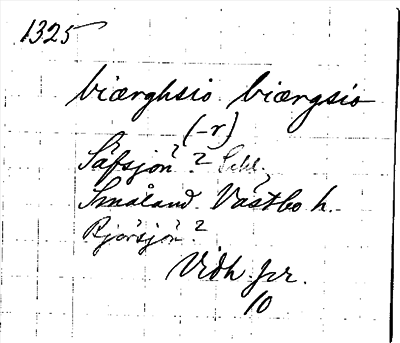 1325
biærghsio biærgsio
(-r)
Säfsjön? ? Schl.
Småland. Västbo h.
Bjärsjön?
Vidh
10